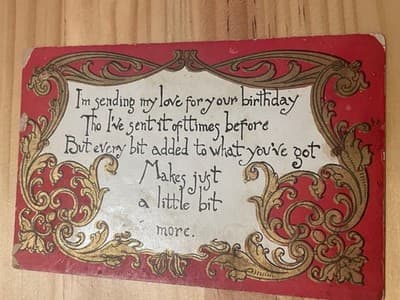 I'm sending my love for your birthday
Tho I've sent it ofttimes before
But every bit added to what you've got
Makes just
a little bit
more.